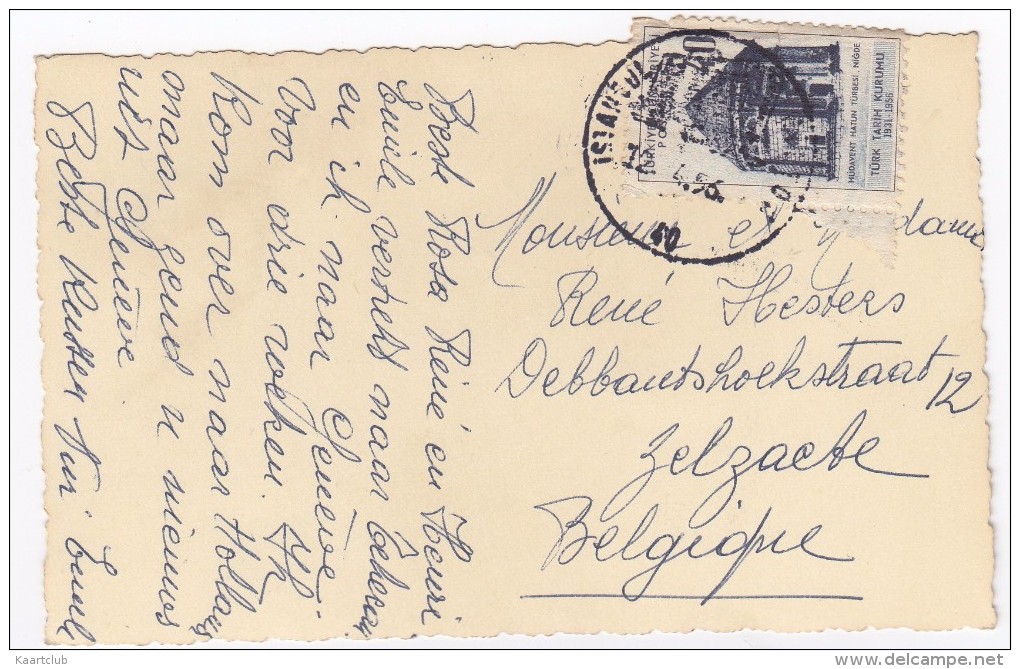 Beste Rosa René en Henri
Emile vertrekt naar Teheran
en ik naar Geneve.
Voor drie weken. Ik
Kom over naar Holland
maar zend u nieuws
uit Geneve
Beste Kussen Emiel
TÜRKİYE
40
HÜDAVENT HATUN TÜRBESİ, NİĞDE
TÜRK TARİH KURUMU
1931-1956
ISTANBUL
Monsieur et Madame
René Hesters
Debbautshoekstraat 12
Zelzaete
Belgique
Kaartclub
www.delcampe.net